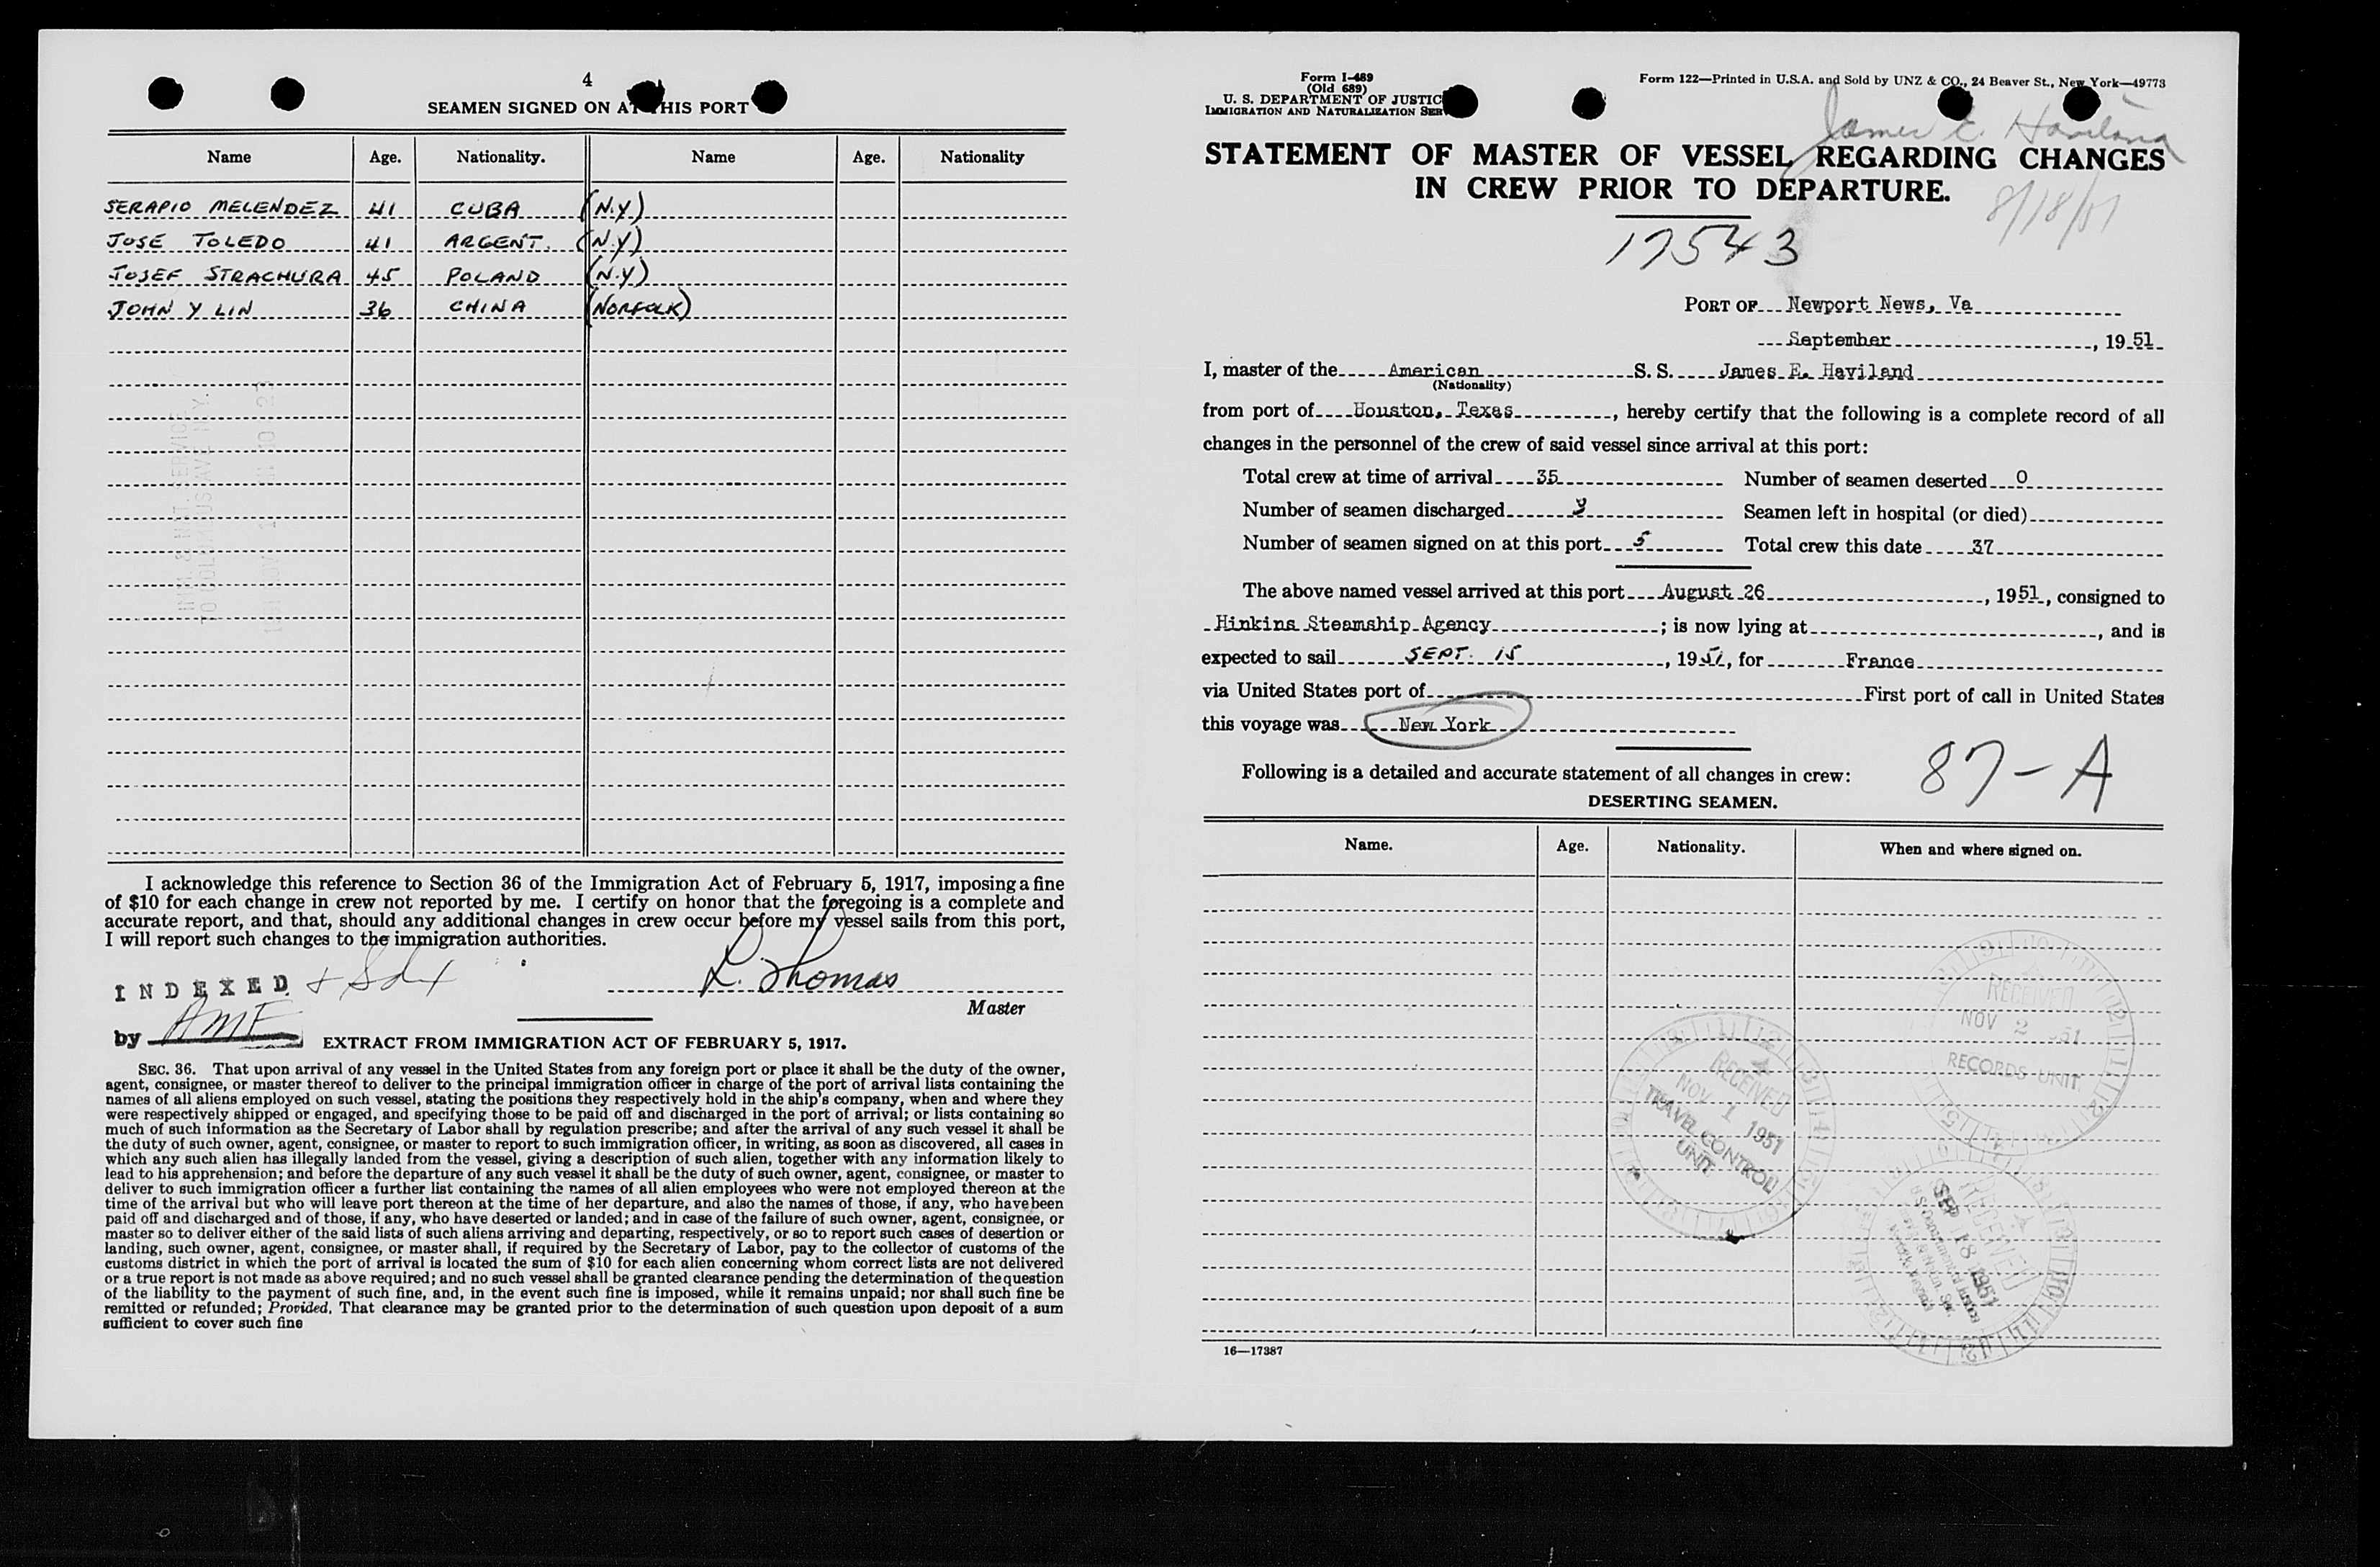 4
SEAMEN SIGNED ON AT THIS PORT
Name Age. Nationality. Name Age. Nationality
SERAPIO MELENDEZ 41 CUBA (N.Y)
JOSE TOLEDO 41 ARGENT. (N.Y)
JOSEF STRACHURA 45 POLAND (N.Y)
JOHN Y LIN 36 CHINA (NORFOLK)
I acknowledge this reference to Section 36 of the Immigration Act of February 5, 1917, imposing a fine
of $10 for each change in crew not reported by me. I certify on honor that the foregoing is a complete and
accurate report, and that, should any additional changes in crew occur before my vessel sails from this port,
I will report such changes to the immigration authorities.
INDEXED
L. Thomas
Master
by AMF
EXTRACT FROM IMMIGRATION ACT OF FEBRUARY 5, 1917.
SEC. 36. That upon arrival of any vessel in the United States from any foreign port or place it shall be the duty of the owner,
agent, consignee, or master thereof to deliver to the principal immigration officer in charge of the port of arrival lists containing the
names of all aliens employed on such vessel, stating the positions they respectively hold in the ship's company, when and where they
were respectively shipped or engaged, and specifying those to be paid off and discharged in the port of arrival; or lists containing so
much of such information as the Secretary of Labor shall by regulation prescribe; and after the arrival of any such vessel it shall be
the duty of such owner, agent, consignee, or master to report to such immigration officer, in writing, as soon as discovered, all cases in
which any such alien has illegally landed from the vessel, giving a description of such alien, together with any information likely to
lead to his apprehension; and before the departure of any such vessel it shall be the duty of such owner, agent, consignee, or master to
deliver to such immigration officer a further list containing the names of all alien employees who were not employed thereon at the
time of the arrival but who will leave port thereon at the time of her departure, and also the names of those, if any, who have been
paid off and discharged and of those, if any, who have deserted or landed; and in case of the failure of such owner, agent, consignee, or
master so to deliver either of the said lists of such aliens arriving and departing, respectively, or so to report such cases of desertion or
landing, such owner, agent, consignee, or master shall, if required by the Secretary of Labor, pay to the collector of customs of the
customs district in which the port of arrival is located the sum of $10 for each alien concerning whom correct lists are not delivered
or a true report is not made as above required; and no such vessel shall be granted clearance pending the determination of the question
of the liability to the payment of such fine, and, in the event such fine is imposed, while it remains unpaid; nor shall such fine be
remitted or refunded; Provided, That clearance may be granted prior to the determination of such question upon deposit of a sum
sufficient to cover such fine
Form I-489
(Old 689)
U. S. DEPARTMENT OF JUSTIC
IMMIGRATION AND NATURALIZATION SER
Form 122—Printed in U.S.A. and Sold by UNZ & CO., 24 Beaver St., New York—49773
James E. Haviland
STATEMENT OF MASTER OF VESSEL REGARDING CHANGES
IN CREW PRIOR TO DEPARTURE.
8/18/51
17543
PORT OF Newport News, Va
September, 1951
I, master of the American S. S. James E. Haviland
(Nationality)
from port of Houston, Texas, hereby certify that the following is a complete record of all
changes in the personnel of the crew of said vessel since arrival at this port:
Total crew at time of arrival 35 Number of seamen deserted 0
Number of seamen discharged 3 Seamen left in hospital (or died)
Number of seamen signed on at this port 5 Total crew this date 37
The above named vessel arrived at this port August 26, 1951, consigned to
Hinkins Steamship Agency; is now lying at, and is
expected to sail SEPT. 15, 1951, for France
via United States port of First port of call in United States
this voyage was New York
Following is a detailed and accurate statement of all changes in crew:
87-A
DESERTING SEAMEN.
Name. Age. Nationality. When and where signed on.
RECEIVED
NOV 2 51
RECORDS UNIT
RECEIVED
NOV 1 1951
TRAVEL CONTROL
UNIT
RECEIVED
SEP 18 1951
16—17387